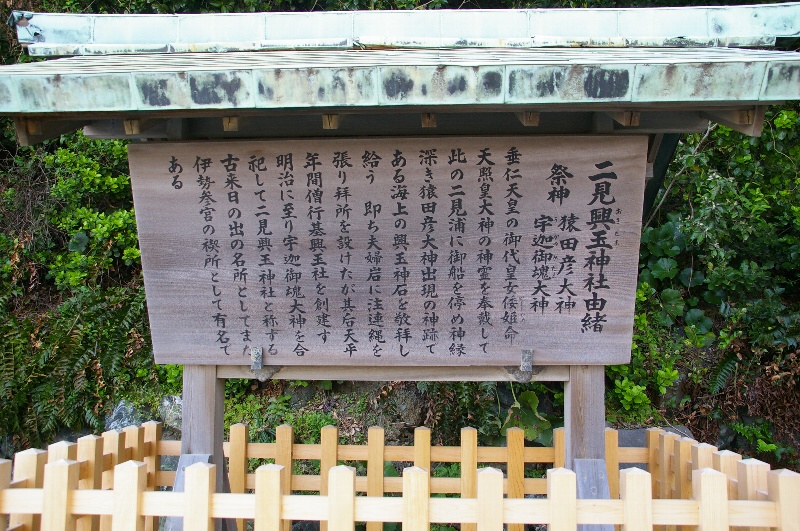 二見興玉神社由緒
おきたま
祭神 猿田彦大神
宇迦御魂大神
垂仁天皇の御代皇女倭姫命
天照皇大神の神霊を奉戴して
此の二見浦に御船を停め神縁
深き猿田彦大神出現の神跡て
ある海上の興玉神石を敬拝し
給う 即ち夫婦岩に注連縄を
張り拝所を設けたが其后天平
年間僧行基興玉社を創建す
明治に至り宇迦御魂大神を合
祀して二見興玉神社と称する
古来日の出の名所としてまた
伊勢参宮の禊所として有名て
ある